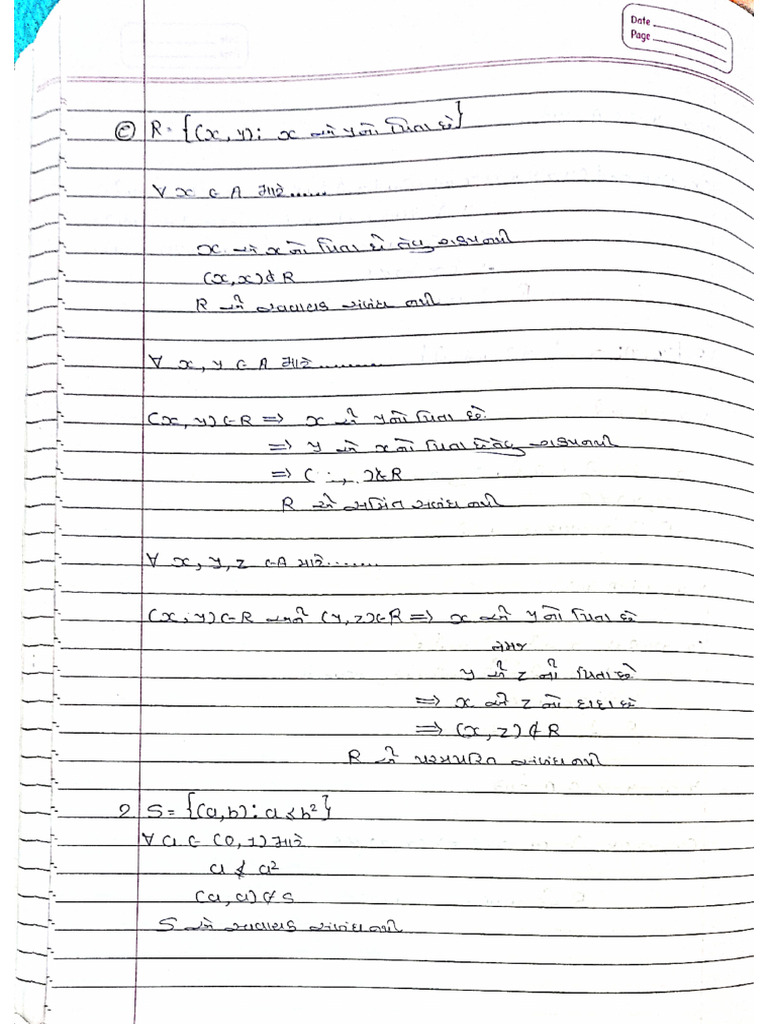 Date
Page
(e) R = {(x, y) : x એ y નો પિતા છે}
∀ x ∈ A માટે......
x એ x નો પિતા છે તેવુ શક્ય નથી
(x, x) ∉ R
R એ સ્વવાચક સંબંધ નથી
∀ x, y ∈ A માટે.........
(x, y) ∈ R ⇒ x એ y નો પિતા છે
⇒ y એ x નો પિતા છે તેવુ શક્ય નથી
⇒ ( , ) ∉ R
R એ સમિત સબંધ નથી
∀ x, y, z ∈ A માટે.......
(x, y) ∈ R અને (y, z) ∈ R ⇒ x એ y નો પિતા છે
તેમજ
y એ z નો પિતા છે
⇒ x એ z નો દાદા છે
⇒ (x, z) ∉ R
R એ પરમપરિત સંબંધ નથી
2 S = {(a, b) : a ≤ b²}
∀ a ∈ (0, 1) માટે
a ≰ a²
(a, a) ∉ S
S એ સ્વવાચક સંબંધ નથી